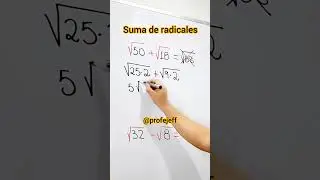 Suma de radicales
√50 + √18 = √68
√25·2 + √9·2
5√
@profejeff
√32 - √8 =